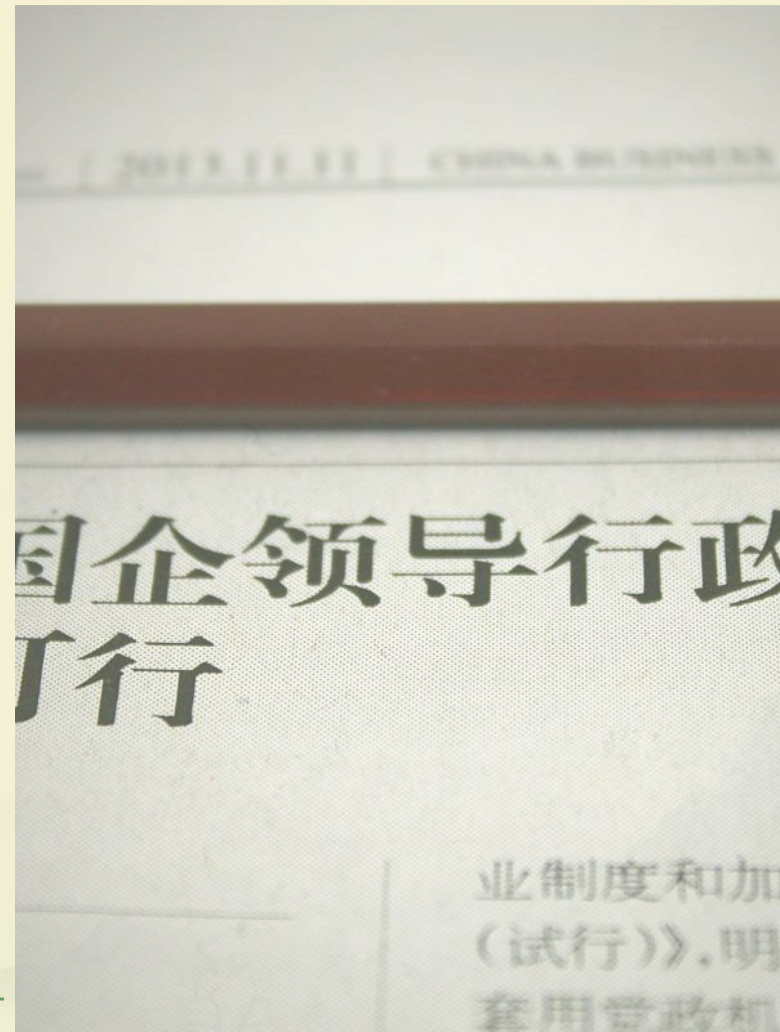 2013.11.11 CHINA BUSINESS
国企领导行政
可行
业制度和加
(试行)》,明
套用党政机